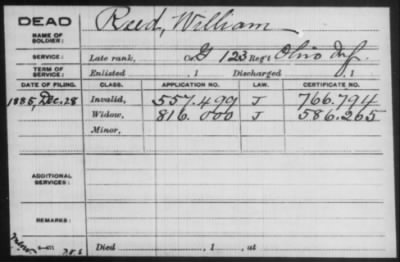 DEAD Reed, William
NAME OF SOLDIER:
SERVICE: Late rank, Co. G 123 Reg't Ohio Inf.
TERM OF SERVICE: Enlisted , 1 Discharged , 1
DATE OF FILING. CLASS. APPLICATION NO. LAW. CERTIFICATE NO.
1885, Dec. 28 Invalid, 557.499 J 766.794
Widow, 816.000 J 586.265
Minor,
ADDITIONAL SERVICES:
REMARKS:
Died , 1 , at